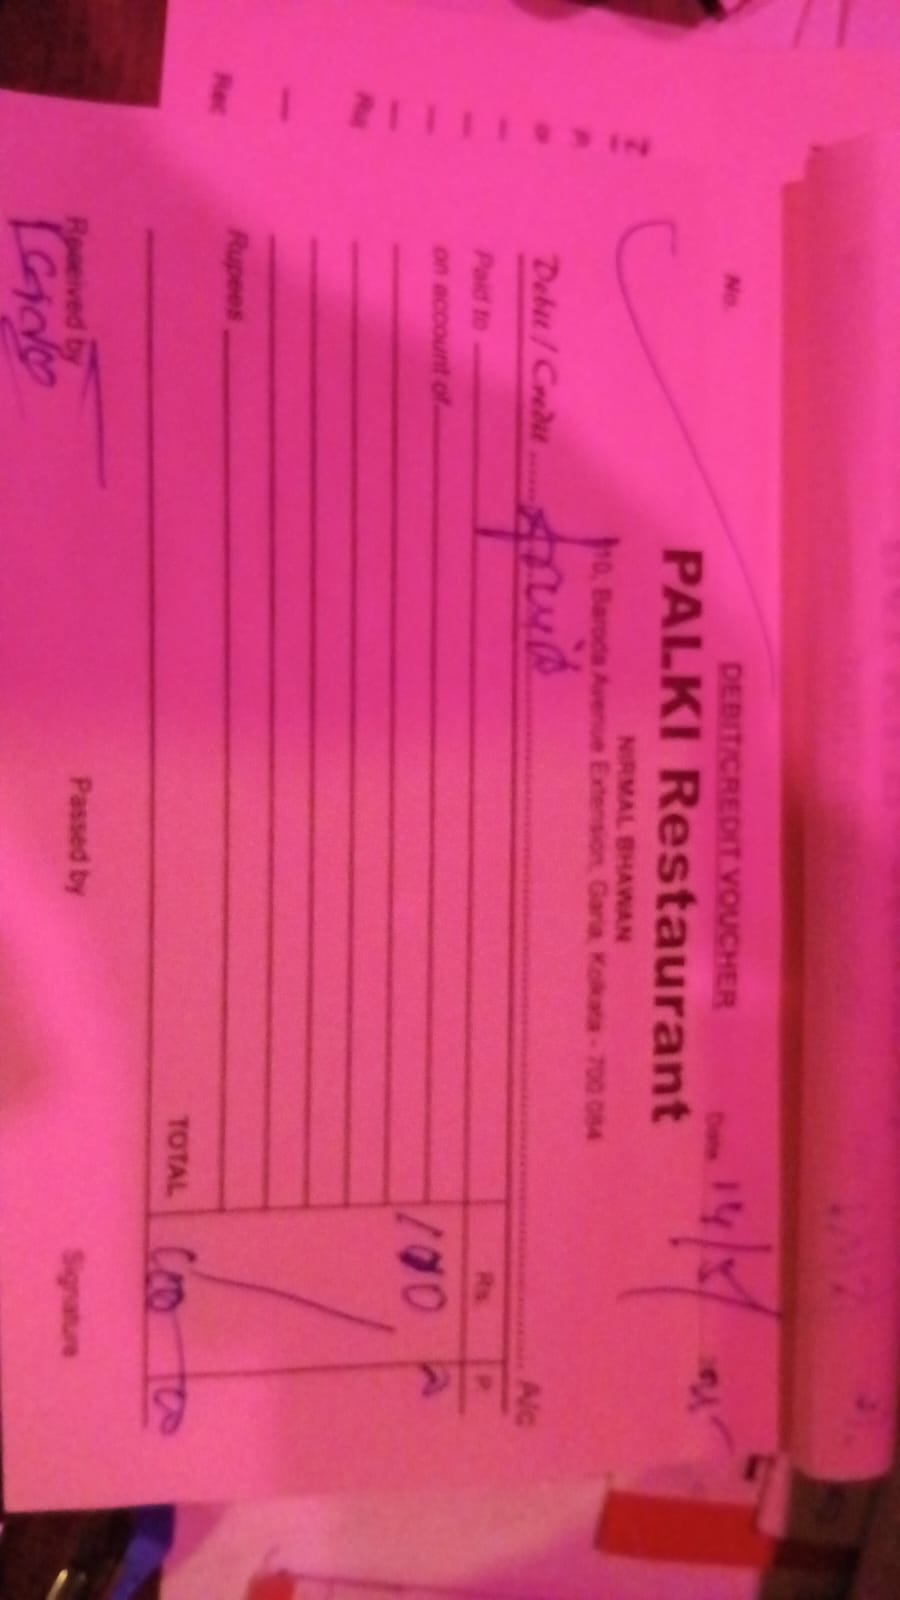 DEBIT/CREDIT VOUCHER
No.
Date
PALKI Restaurant
NIRMAL BHAWAN
10, Baroda Avenue Extension, Garia, Kolkata - 700 084
Debit / Credit ........ A/c
Paid to Rs. P.
on account of 100
Rupees
TOTAL 100 00
Received by Passed by Signature